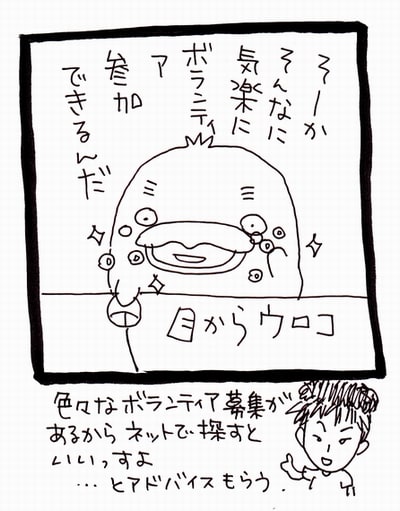 そーか
そんなに
気楽に
ボランティ
ア
参加
できるんだ
目からウロコ
色々なボランティア募集が
あるからネットで探すと
いいっすよ
…とアドバイスもらう.